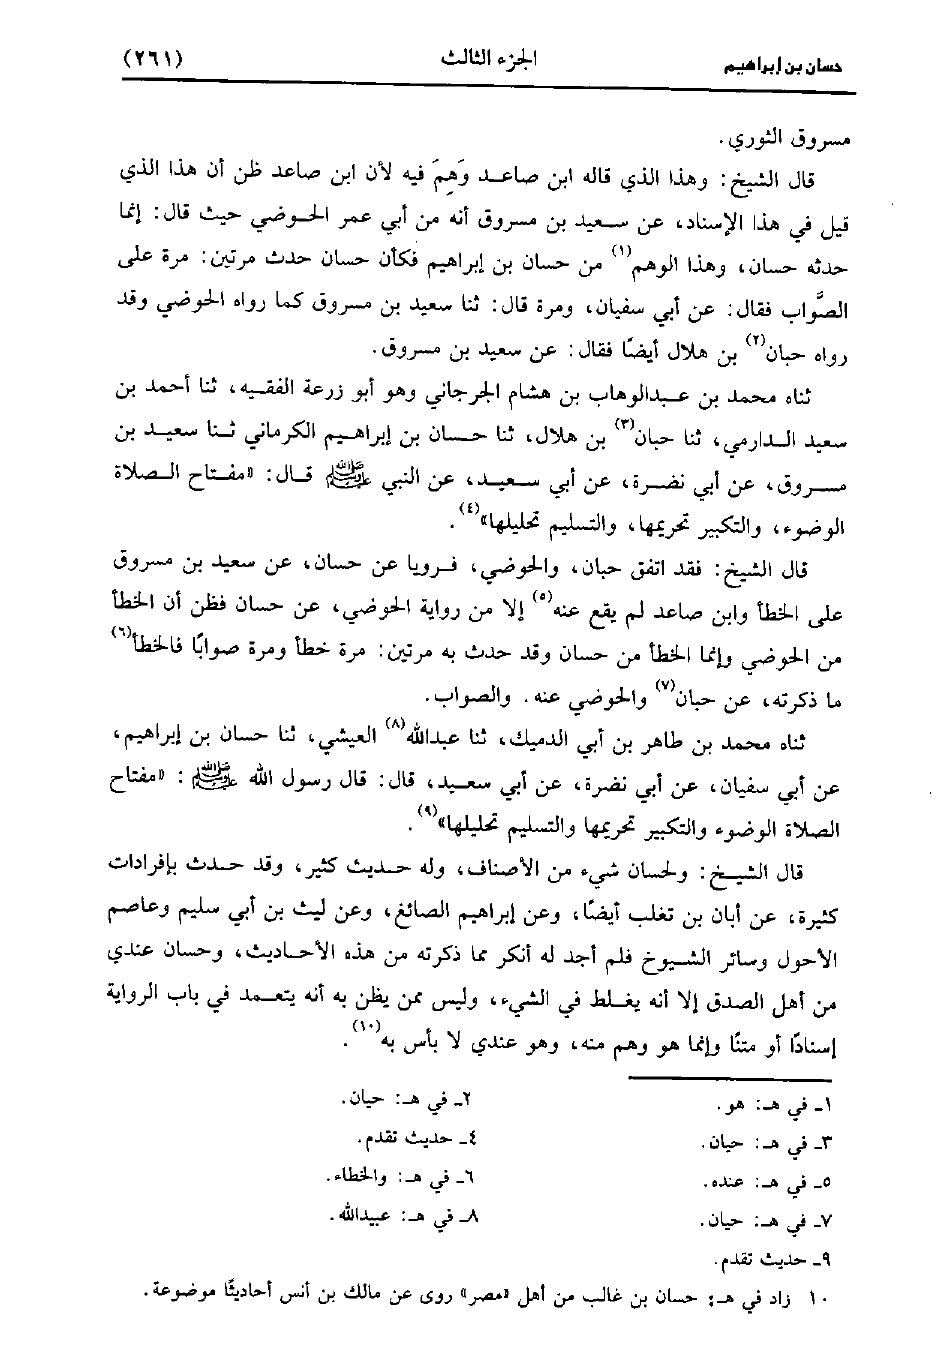 حسان بن إبراهيم الجزء الثالث (٢٦١)
مسروق الثوري.
قال الشيخ: وهذا الذي قاله ابن صاعد وَهِمَ فيه لأن ابن صاعد ظن أن هذا الذي
قيل في هذا الإسناد، عن سعيد بن مسروق أنه من أبي عمر الحوضي حيث قال: إنما
حدثه حسان، وهذا الوهم(١) من حسان بن إبراهيم فكأن حسان حدث مرتين: مرة على
الصَّواب فقال: عن أبي سفيان، ومرة قال: ثنا سعيد بن مسروق كما رواه الحوضي وقد
رواه حبان(٢) بن هلال أيضًا فقال: عن سعيد بن مسروق.
ثناه محمد بن عبدالوهاب بن هشام الجرجاني وهو أبو زرعة الفقيه، ثنا أحمد بن
سعيد الدارمي، ثنا حبان(٣) بن هلال، ثنا حسان بن إبراهيم الكرماني ثنا سعيد بن
مسروق، عن أبي نضرة، عن أبي سعيد، عن النبي ﷺ قال: «مفتاح الصلاة
الوضوء، والتكبير تحريمها، والتسليم تحليلها»(٤).
قال الشيخ: فقد اتفق حبان، والحوضي، فرويا عن حسان، عن سعيد بن مسروق
على الخطأ وابن صاعد لم يقع عنه(٥) إلا من رواية الحوضي، عن حسان فظن أن الخطأ
من الحوضي وإنما الخطأ من حسان وقد حدث به مرتين: مرة خطأ ومرة صوابًا فالخطأ(٦)
ما ذكرته، عن حبان(٧) والحوضي عنه. والصواب.
ثناه محمد بن طاهر بن أبي الدميك، ثنا عبدالله(٨) العيشي، ثنا حسان بن إبراهيم،
عن أبي سفيان، عن أبي نضرة، عن أبي سعيد، قال: قال رسول الله ﷺ: «مفتاح
الصلاة الوضوء والتكبير تحريمها والتسليم تحليلها»(٩).
قال الشيخ: ولحسان شيء من الأصناف، وله حديث كثير، وقد حدث بإفرادات
كثيرة، عن أبان بن تغلب أيضًا، وعن إبراهيم الصائغ، وعن ليث بن أبي سليم وعاصم
الأحول وسائر الشيوخ فلم أجد له أنكر مما ذكرته من هذه الأحاديث، وحسان عندي
من أهل الصدق إلا أنه يغلط في الشيء، وليس ممن يظن به أنه يتعمد في باب الرواية
إسنادًا أو متنًا وإنما هو وهم منه، وهو عندي لا بأس به(١٠).
١ـ في هـ: هو. ٢ـ في هـ: حيان.
٣ـ في هـ: حيان. ٤ـ حديث تقدم.
٥ـ في هـ: عنده. ٦ـ في هـ: والخطاء.
٧ـ في هـ: حيان. ٨ـ في هـ: عبيدالله.
٩ـ حديث تقدم.
١٠ زاد في هـ: حسان بن غالب من أهل «مصر» روى عن مالك بن أنس أحاديثًا موضوعة.